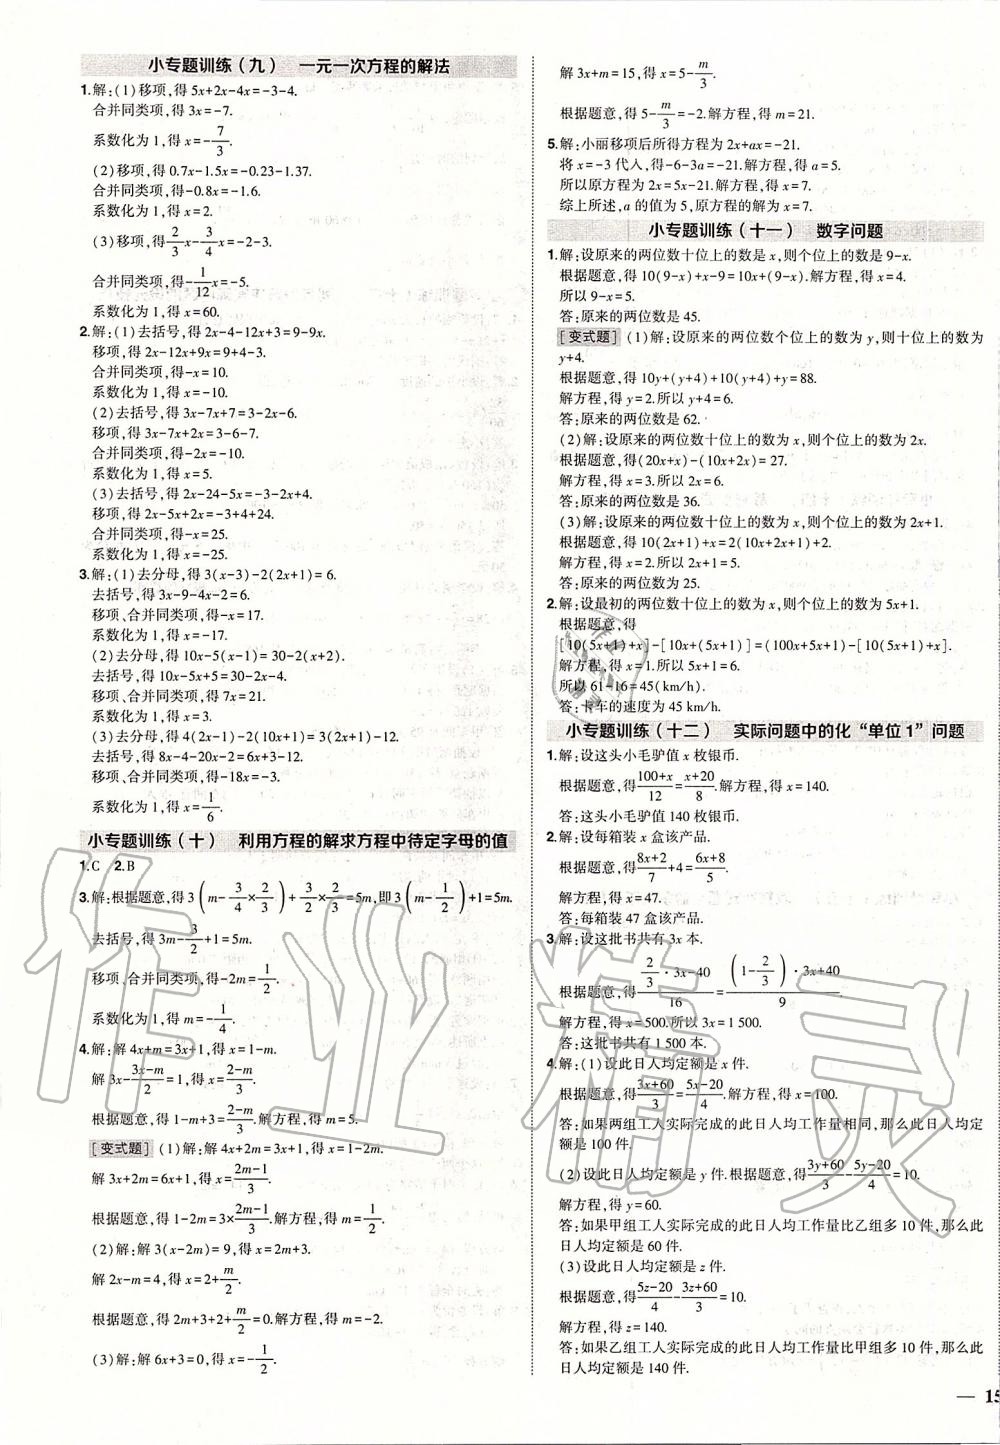 小专题训练(九) 一元一次方程的解法
1.解:(1)移项,得 5x+2x-4x=-3-4.
合并同类项,得 3x=-7.
系数化为 1,得 x=-7/3.
(2)移项,得 0.7x-1.5x=-0.23-1.37.
合并同类项,得-0.8x=-1.6.
系数化为 1,得 x=2.
(3)移项,得 2/3x-3/4x=-2-3.
合并同类项,得-1/12x=-5.
系数化为 1,得 x=60.
2.解:(1)去括号,得 2x-4-12x+3=9-9x.
移项,得 2x-12x+9x=9+4-3.
合并同类项,得-x=10.
系数化为 1,得 x=-10.
(2)去括号,得 3x-7x+7=3-2x-6.
移项,得 3x-7x+2x=3-6-7.
合并同类项,得-2x=-10.
系数化为 1,得 x=5.
(3)去括号,得 2x-24-5x=-3-2x+4.
移项,得 2x-5x+2x=-3+4+24.
合并同类项,得-x=25.
系数化为 1,得 x=-25.
3.解:(1)去分母,得 3(x-3)-2(2x+1)=6.
去括号,得 3x-9-4x-2=6.
移项、合并同类项,得-x=17.
系数化为 1,得 x=-17.
(2)去分母,得 10x-5(x-1)=30-2(x+2).
去括号,得 10x-5x+5=30-2x-4.
移项、合并同类项,得 7x=21.
系数化为 1,得 x=3.
(3)去分母,得 4(2x-1)-2(10x-1)=3(2x+1)-12.
去括号,得 8x-4-20x+2=6x+3-12.
移项、合并同类项,得-18x=-3... 
系数化为 1,得 x=1/6.
小专题训练(十) 利用方程的解求方程中待定字母的值
1.C 2.B
3.解:根据题意,得 3(m-3/4×2/3)+3/2×2/3=5m,即 3(m-1/2)+1=5m.
去括号,得 3m-3/2+1=5m.
移项、合并同类项,得-2m=1/2.
系数化为 1,得 m=-1/4.
4.解:解 4x+m=3x+1,得 x=1-m.
解 3x-3x-m/2=1,得 x=2-m/3.
根据题意,得 1-m+3=2-m/3.解方程,得 m=5.
[变式题] (1)解:解 4x+2m=3x+1,得 x=1-2m.
解 3x+2m=6x+1,得 x=2m-1/3.
根据题意,得 1-2m=3×2m-1/3.解方程,得 m=1/2.
(2)解:解 3(x-2m)=9,得 x=2m+3.
解 2x-m=4,得 x=2+m/2.
根据题意,得 2m+3+2+m/2=0.解方程,得 m=-2.
(3)解:解 6x+3=0,得 x=-1/2.
解 3x+m=15,得 x=5-m/3.
根据题意,得 5-m/3=-2.解方程,得 m=21.
5.解:小丽移项后所得方程为 2x+ax=-21.
将 x=-3 代人,得-6-3a=-21.解方程,得 a=5.
所以原方程为 2x=5x-21.解方程,得 x=7.
综上所述,a 的值为 5,原方程的解为 x=7.
小专题训练(十一) 数字问题
1.解:设原来的两位数十位上的数是 x,则个位上的数是 9-x.
根据题意,得 10(9-x)+x-9=10x+(9-x).解方程,得 x=4.
所以 9-x=5.
答:原来的两位数是 45.
[变式题] (1)解:设原来的两位数个位上的数为 y,则十位上的数为
y+4.
根据题意,得 10y+(y+4)+10(y+4)+y=88.
解方程,得 y=2.所以 y+4=6.
答:原来的两位数是 62.
(2)解:设原来的两位数十位上的数为 x,则个位上的数为 2x.
根据题意,得(20x+x)-(10x+2x)=27.
解方程,得 x=3.所以 2x=6.
答:原来的两位数是 36.
(3)解:设原来的两位数十位上的数为 x,则个位上的数为 2x+1.
根据题意,得 10(2x+1)+x=2(10x+2x+1)+2.
解方程,得 x=2.所以 2x+1=5.
答:原来的两位数为 25.
2.解:设最初的两位数十位上的数为 x,则个位上的数为 5x+1.
根据题意,得
[10(5x+1)+x]-[10x+(5x+1)]=(100x+5x+1)-[10(5x+1)+x].
解方程,得 x=1.所以 5x+1=6.
所以 61-16=45(km/h).
答:卡车的速度为 45 km/h.
小专题训练(十二) 实际问题中的化“单位1”问题
1.解:设这头小毛驴值 x 枚银币.
根据题意,得100+x/12=x+20/8.解方程,得 x=140.
答:这头小毛驴值 140 枚银币.
2.解:设每箱装 x 盒该产品.
根据题意,得8x+2/7+4=6x+8/5.
解方程,得 x=47.
答:每箱装 47 盒该产品.
3.解:设这批书共有 3x 本.
根据题意,得 2/3·3x-40/16=(1-2/3)·3x+40/9.
解方程,得 x=500.所以 3x=1 500.
答:这批书共有 1 500 本.
4.解:(1)设此日人均定额是 x 件.
根据题意,得3x+60/3=5x-20/4.解方程,得 x=100.
答:如果两组工人实际完成的此日人均工作量相同,那么此日人均定
额是 100 件.
(2)设此日人均定额是 y 件.根据题意,得3y+60/3-5y-20/4=10.
解方程,得 y=60.
答:如果甲组工人实际完成的此日人均工作量比乙组多 10 件,那么此
日人均定额是 60 件.
(3)设此日人均定额是 z 件.
根据题意,得5z-20/4-3z+60/3=10.
解方程,得 z=140.
答:如果乙组工人实际完成的此日人均工作量比甲组多 10 件,那么此
日人均定额是 140 件.
— 15
作业精灵